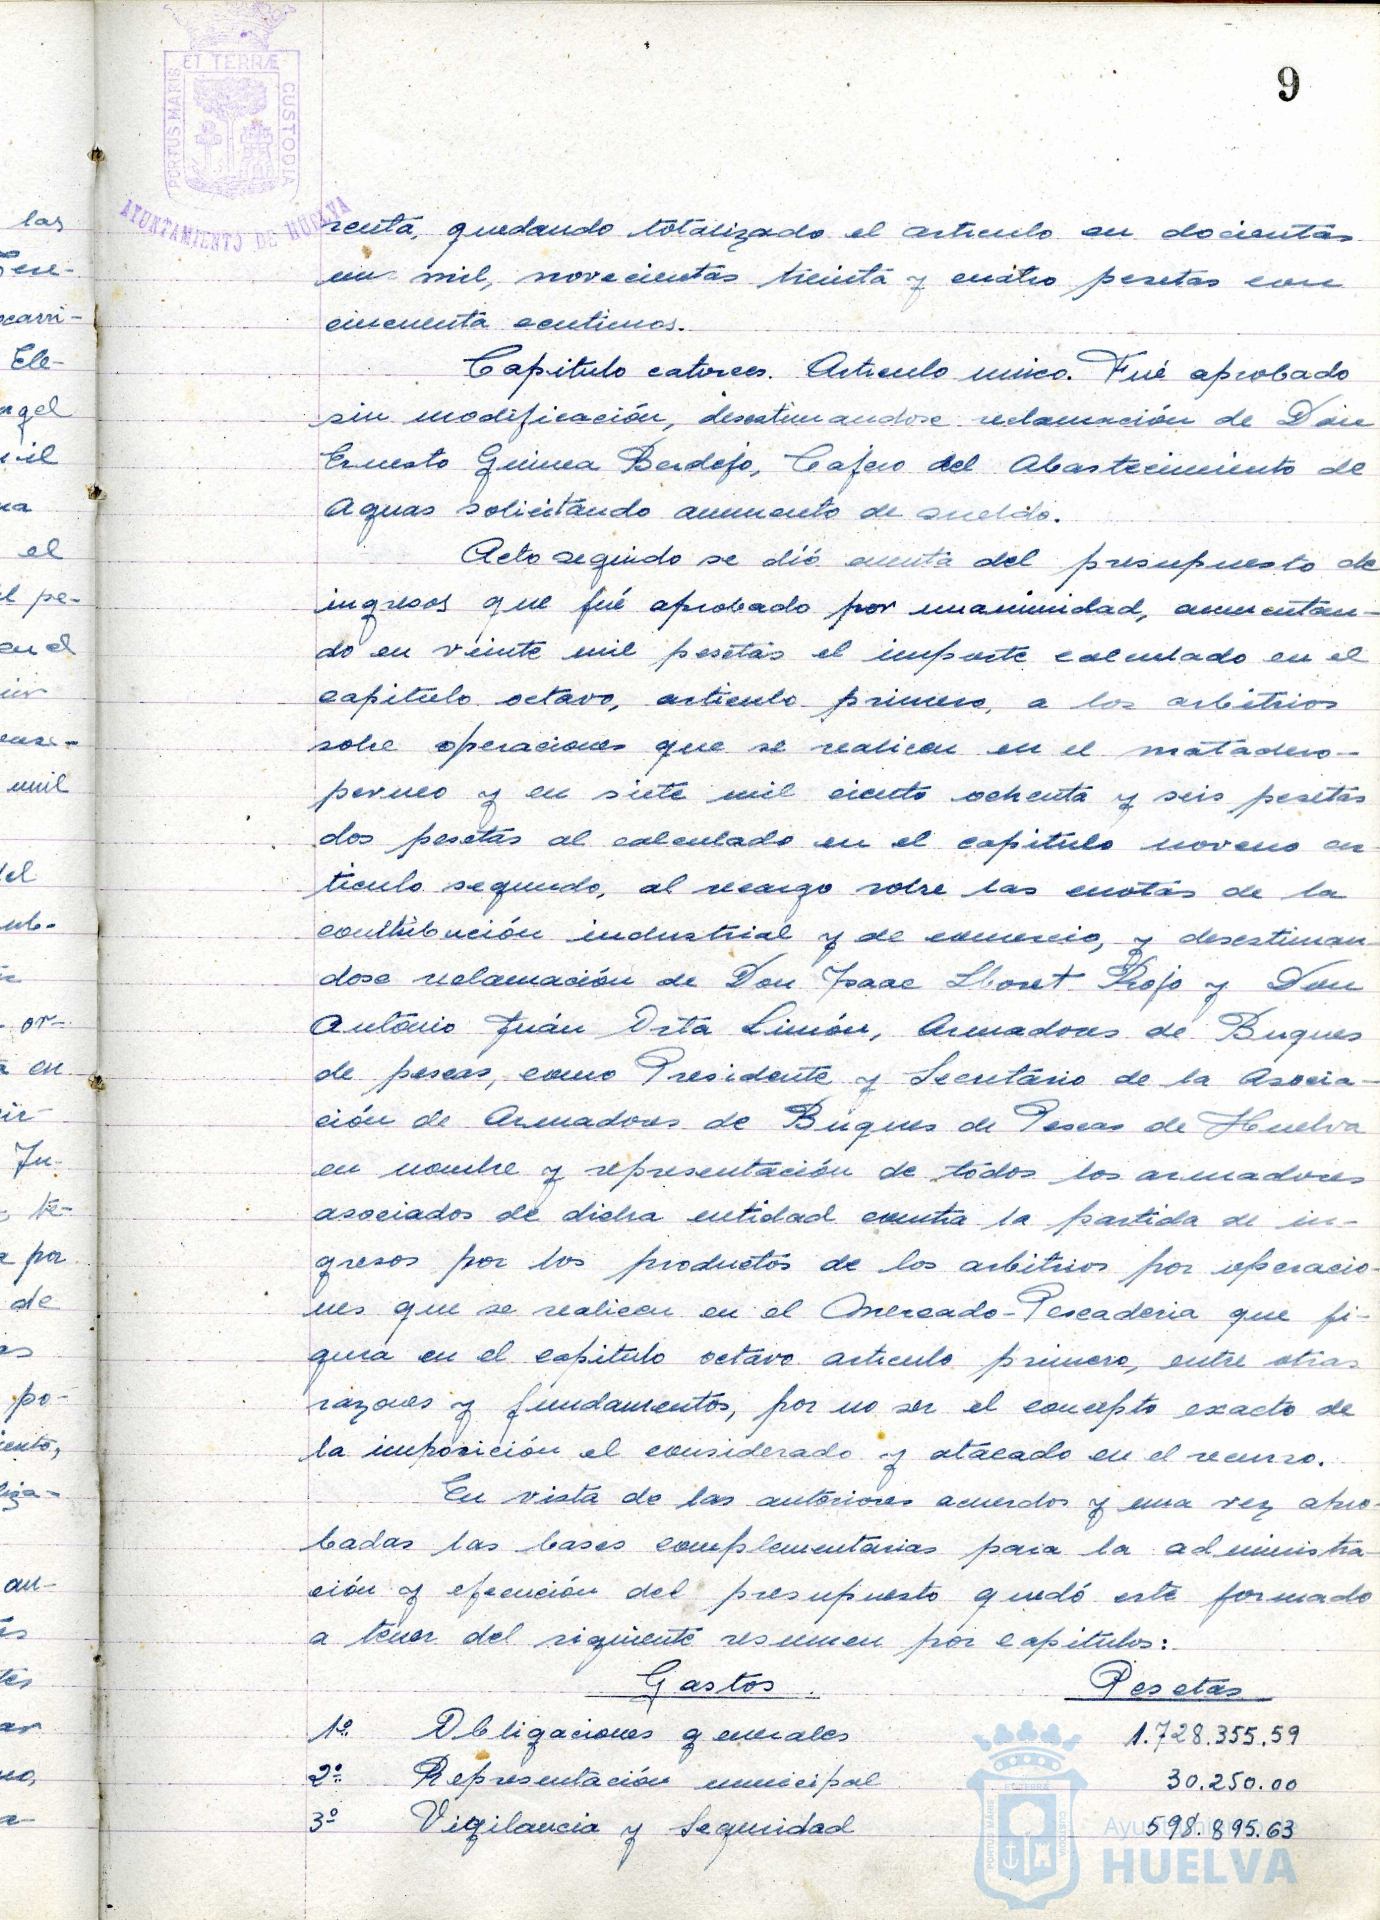 9
ET TERRÆ
PORTUS MARIS
CUSTODIA
AYUNTAMIENTO DE HUELVA
renta, quedando totalizado el articulo en docientas
un mil, novecientas treinta y cuatro pesetas con
cincuenta centimos.
Capitulo catorces. Articulo unico. Fué aprobado
sin modificación, desestimandose reclamación de Don
Ernesto Guinea Berdejo, Cajero del Abastecimiento de
Aguas solicitando aumento de sueldo.
Acto seguido se dió cuenta del presupuesto de
ingresos que fué aprobado por unanimidad, aumentan-
do en veinte mil pesetas el importe calculado en el
capitulo octavo, articulo primero, a los arbitrios
sobre operaciones que se realicen en el matadero-
perneo y en siete mil ciento ochenta y seis pesetas
dos pesetas al calculado en el capitulo noveno ar-
ticulo segundo, al recargo sobre las cuotas de la
contribución industrial y de comercio, y desestiman-
dose reclamación de Don Isaac Lloret Rojo y Don
Antonio Juán Orta Limón, Armadores de Buques
de pescas, como Presidente y Secretario de la Asocia-
ción de Armadores de Buques de Pescas de Huelva
en nombre y representación de todos los armadores
asociados de dicha entidad contra la partida de in-
gresos por los productos de los arbitrios por operacio-
nes que se realicen en el Mercado-Pescaderia que fi-
gura en el capitulo octavo articulo primero, entre otras
razones y fundamentos, por no ser el concepto exacto de
la imposición el considerado y atacado en el recurso.
En vista de las anteriores acuerdos y una vez apro-
badas las bases complementarias para la administra-
ción y ejecución del presupuesto quedó este formado
a tenor del siguiente resumen por capitulos:
Gastos. Pesetas
1º. Obligaciones generales 1.728.355.59
2º. Representación municipal 30.250.00
3º Vigilancia y Seguridad 598.895.63
Ayuntamiento de
HUELVA